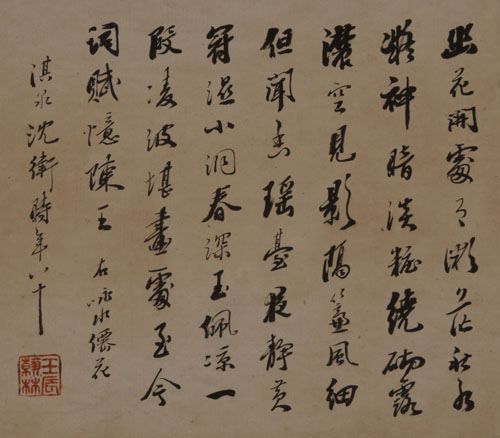 幽花開處月微茫秋水
凝神暗淡粧繞砌露
濃空見影隔簾風細
但聞香瑤臺夜靜黃
冠濕小洞春深玉佩涼一
段凌波堪畫處至今
詞賦憶陳王 右咏水僊花
淇泉沈衛時年八十
壬辰翰林